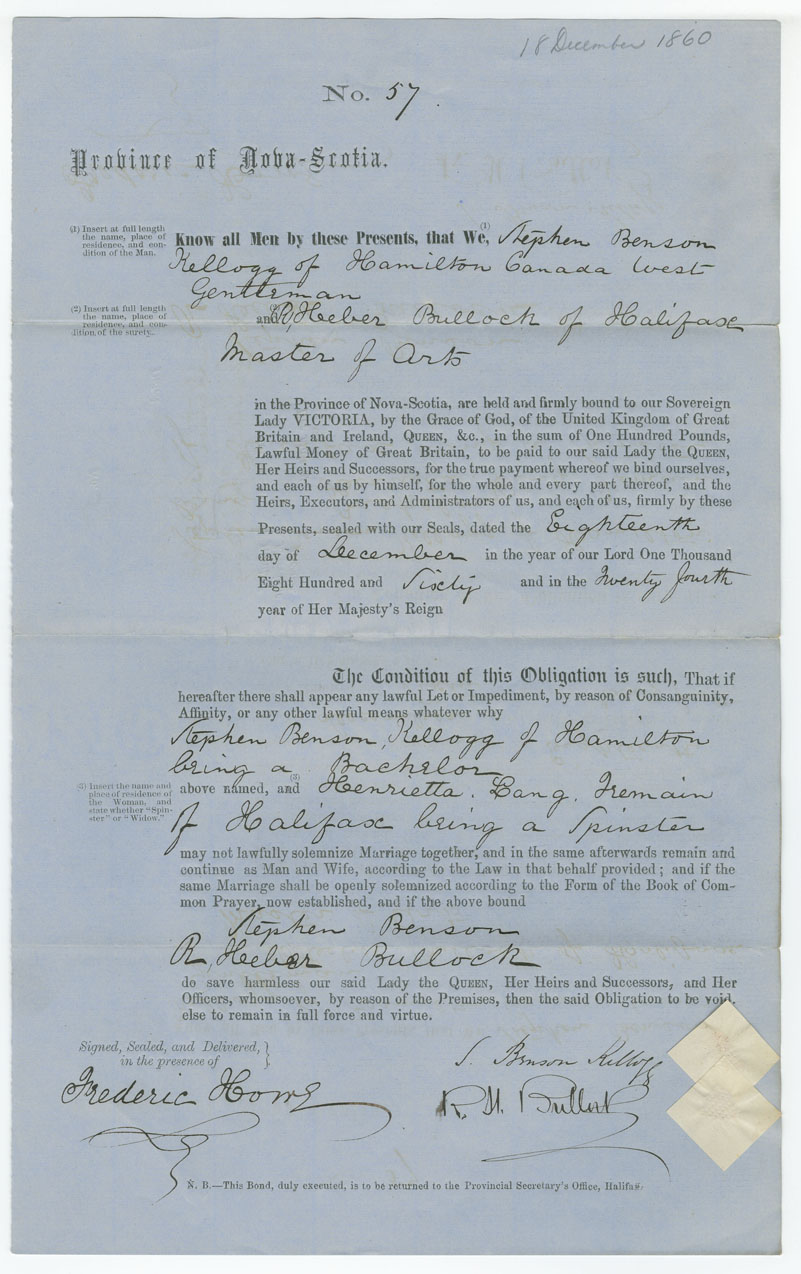 18 December 1860
No. 57.
Province of Nova-Scotia.
(1) Insert at full length
the name, place of
residence, and con-
dition of the Man.
Know all Men by these Presents, that We, (1) Stephen Benson
Kellogg of Hamilton Canada West
Gentleman
(2) Insert at full length
the name, place of
residence, and con-
dition of the surety.
and (2) R, Heber Bullock of Halifax
Master of Arts
in the Province of Nova-Scotia, are held and firmly bound to our Sovereign
Lady VICTORIA, by the Grace of God, of the United Kingdom of Great
Britain and Ireland, QUEEN, &c., in the sum of One Hundred Pounds,
Lawful Money of Great Britain, to be paid to our said Lady the QUEEN,
Her Heirs and Successors, for the true payment whereof we bind ourselves,
and each of us by himself, for the whole and every part thereof, and the
Heirs, Executors, and Administrators of us, and each of us, firmly by these
Presents, sealed with our Seals, dated the Eighteenth
day of December in the year of our Lord One Thousand
Eight Hundred and Sixty and in the Twenty fourth
year of Her Majesty's Reign
The Condition of this Obligation is such, That if
hereafter there shall appear any lawful Let or Impediment, by reason of Consanguinity,
Affinity, or any other lawful means whatever why
Stephen Benson, Kellogg of Hamilton
being a Bachelor
(3) Insert the name and
place of residence of
the Woman, and
state whether "Spin-
ster" or "Widow."
above named, and (3) Henrietta. Lang. Tremain
of Halifax being a Spinster
may not lawfully solemnize Marriage together, and in the same afterwards remain and
continue as Man and Wife, according to the Law in that behalf provided; and if the
same Marriage shall be openly solemnized according to the Form of the Book of Com-
mon Prayer, now established, and if the above bound
Stephen Benson
R, Heber Bullock
do save harmless our said Lady the QUEEN, Her Heirs and Successors, and Her
Officers, whomsoever, by reason of the Premises, then the said Obligation to be void,
else to remain in full force and virtue.
Signed, Sealed, and Delivered,
in the presence of
S. Benson Kellogg
Frederic Howe
R. H. Bullock
N. B.—This Bond, duly executed, is to be returned to the Provincial Secretary's Office, Halifax.